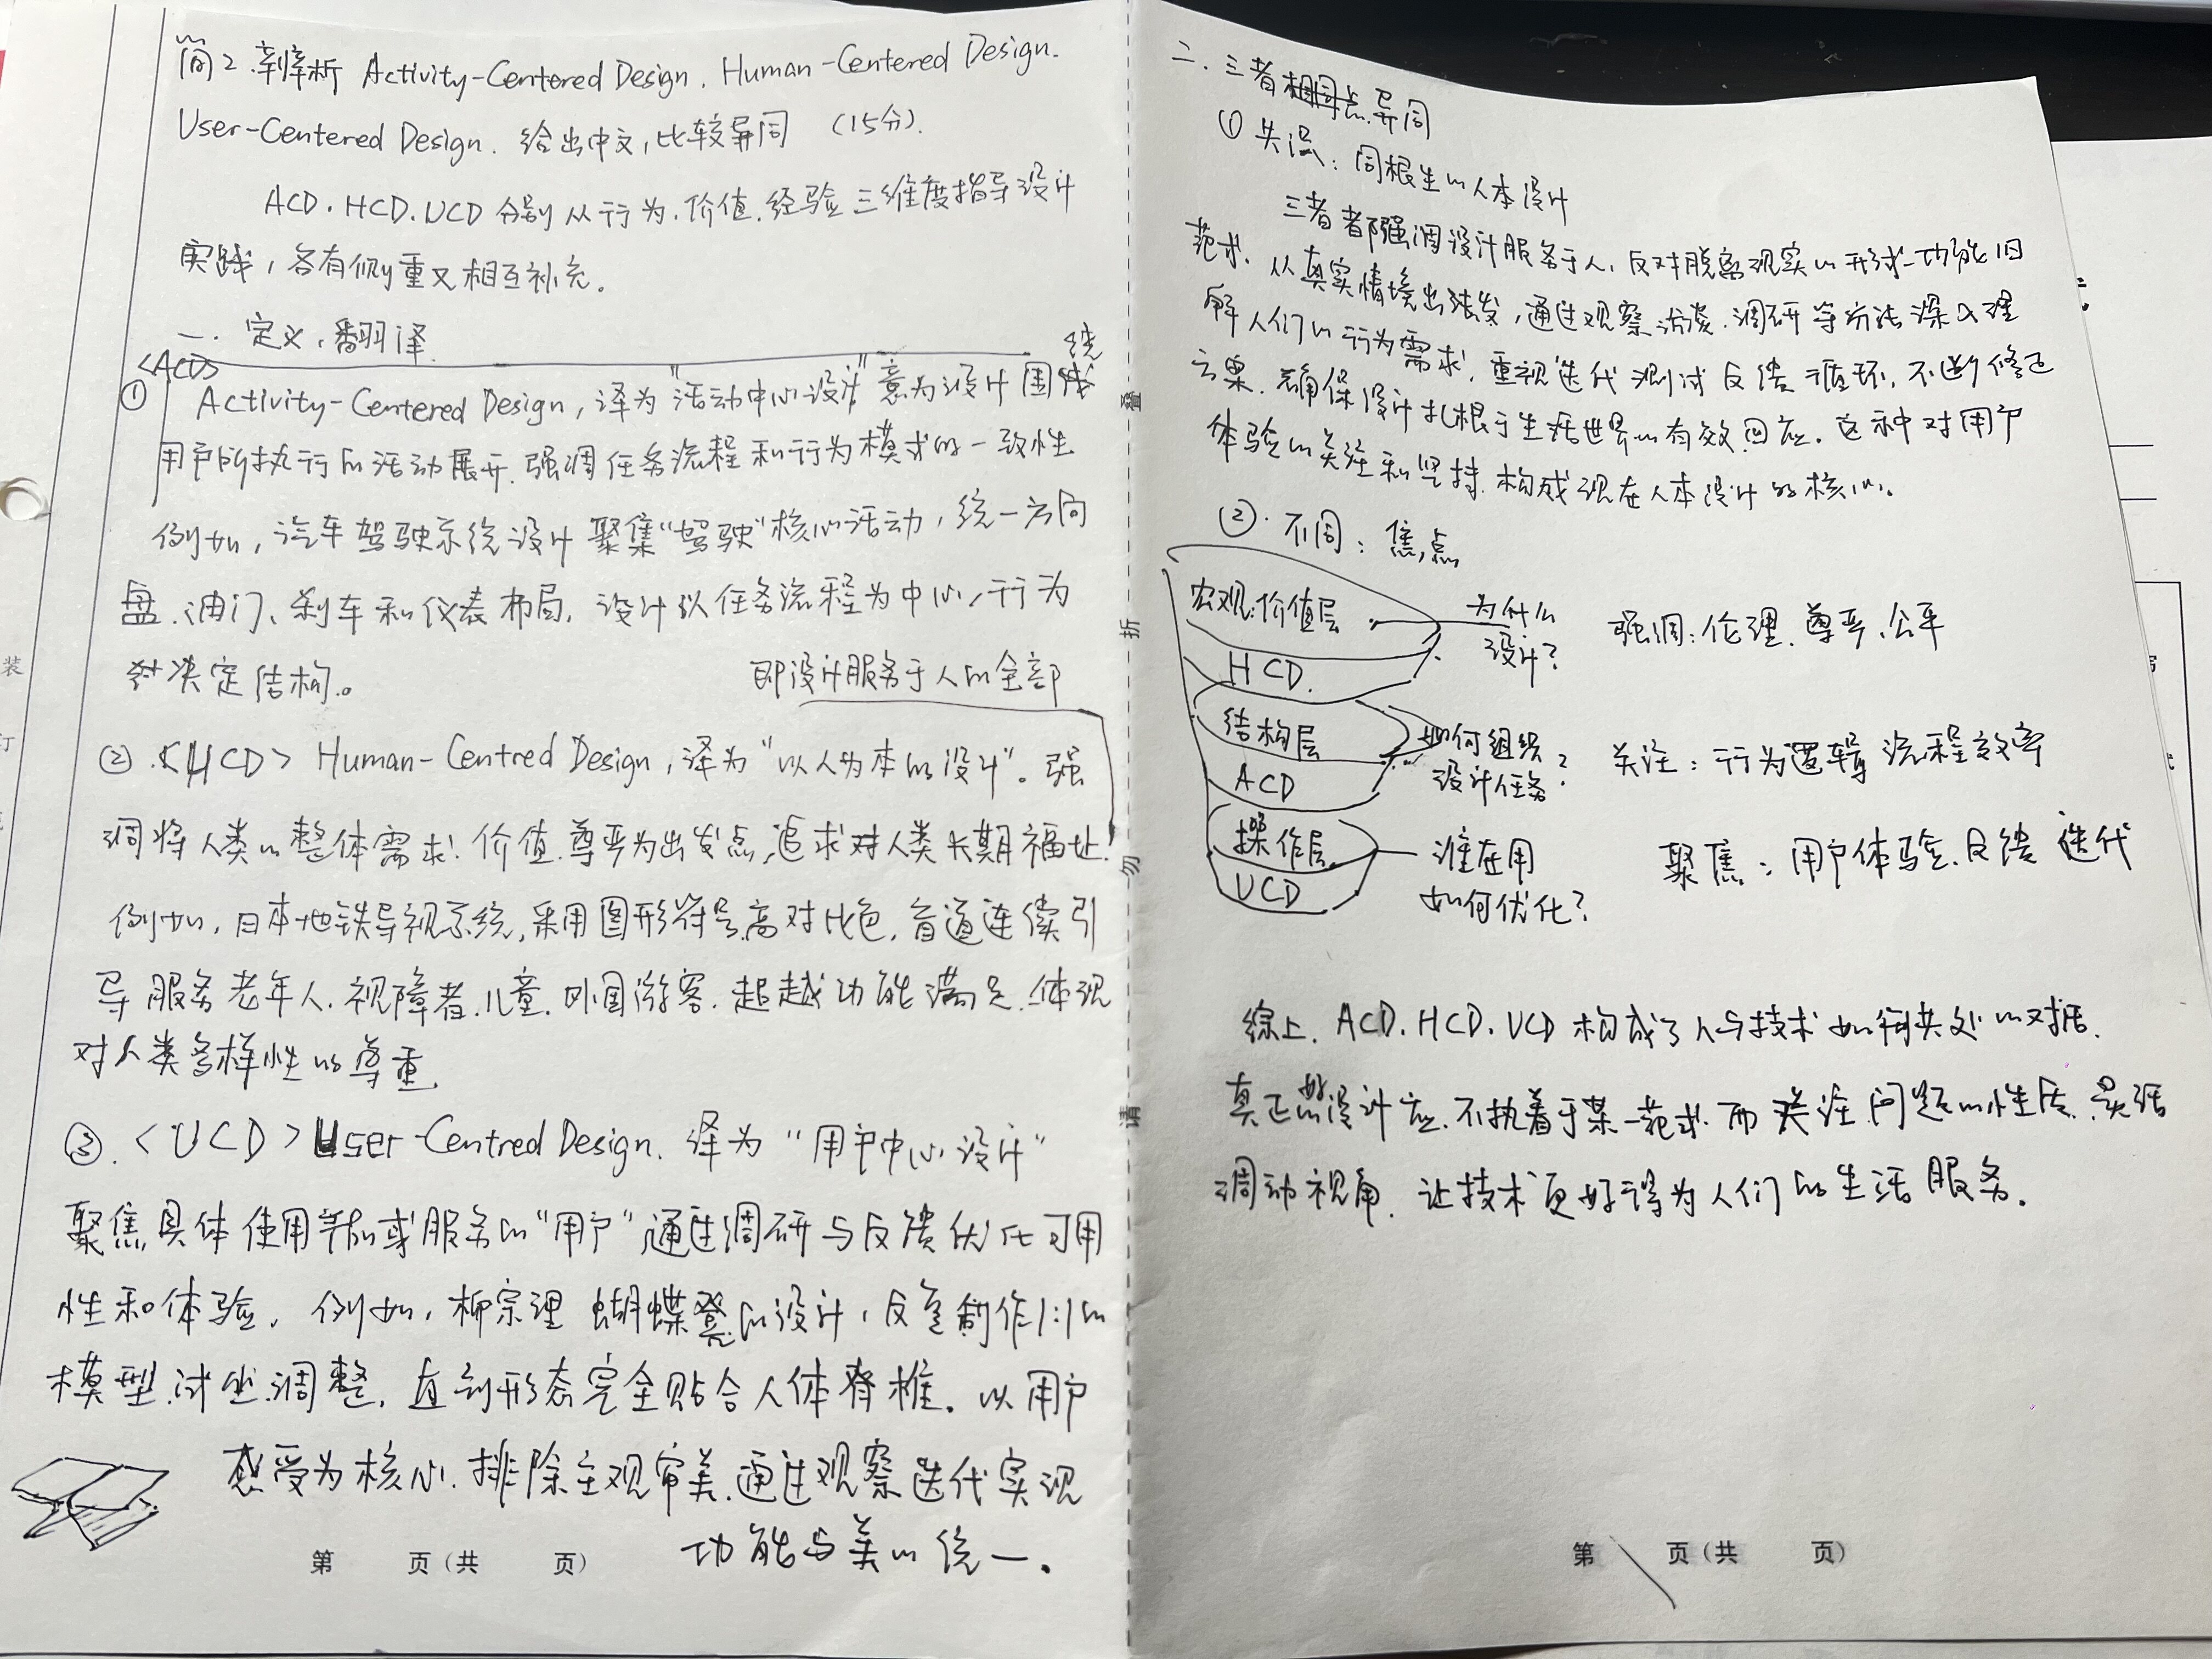 简2.辨析 Activity-Centered Design. Human-Centered Design.
User-Centered Design. 给出中文,比较异同 (15分).
ACD.HCD.UCD 分别从行为.价值.经验三维度指导设计
实践,各有侧重又相互补充。
一. 定义.翻译.
<ACD>
① Activity-Centered Design,译为"活动中心设计"意为设计围绕
用户所执行的活动展开.强调任务流程和行为模式的一致性
例如,汽车驾驶系统设计聚集"驾驶"核心活动,统一方向
盘.油门、刹车和仪表布局.设计以任务流程为中心,行为
决定结构。
即设计服务于人的全部
②.<HCD> Human-Centred Design,译为"以人为本的设计"。强
调将人类的整体需求.价值.尊严为出发点,追求对人类长期福祉.
例如,日本地铁导视系统,采用图形符号.高对比色.盲道连续引
导服务老年人.视障者.儿童.外国游客.超越功能满足.体现
对人类多样性的尊重.
③.<UCD>User-Centred Design.译为"用户中心设计"
聚焦具体使用或服务的"用户"通过调研与反馈优化可用
性和体验.例如,柳宗理蝴蝶凳的设计,反复制作1:1的
模型.试坐.调整.直到形态完全贴合人体脊椎。以用户
感受为核心.排除主观审美.通过观察迭代实现
功能与美的统一.
第 页(共 页)
叠
折
勿
请
装
订
二.三者异同
① 共识:同根生的人本设计
三者都强调设计服务于人.反对脱离现实的形式-功能旧
范式.从真实情境出发,通过观察.访谈.调研等方法深入理
解人们的行为需求.重视迭代测试反馈循环.不断修正
方案.确保设计扎根于生活世界的有效回应.这种对用户
体验的关注和坚持.构成现在人本设计的核心.
②.不同:焦点
宏观:价值层
HCD.
为什么
设计?
强调:伦理.尊严.公平
结构层
ACD
如何组织
设计任务?
关注:行为逻辑 流程效率
操作层
UCD
谁在用
如何优化?
聚焦:用户体验.反馈 迭代
综上.ACD.HCD.UCD 构成了人与技术如何共处的对话.
真正的设计应.不执着于某一范式.而关注问题的性质.灵活
调动视角.让技术更好得为人们的生活服务.
第 页(共 页)